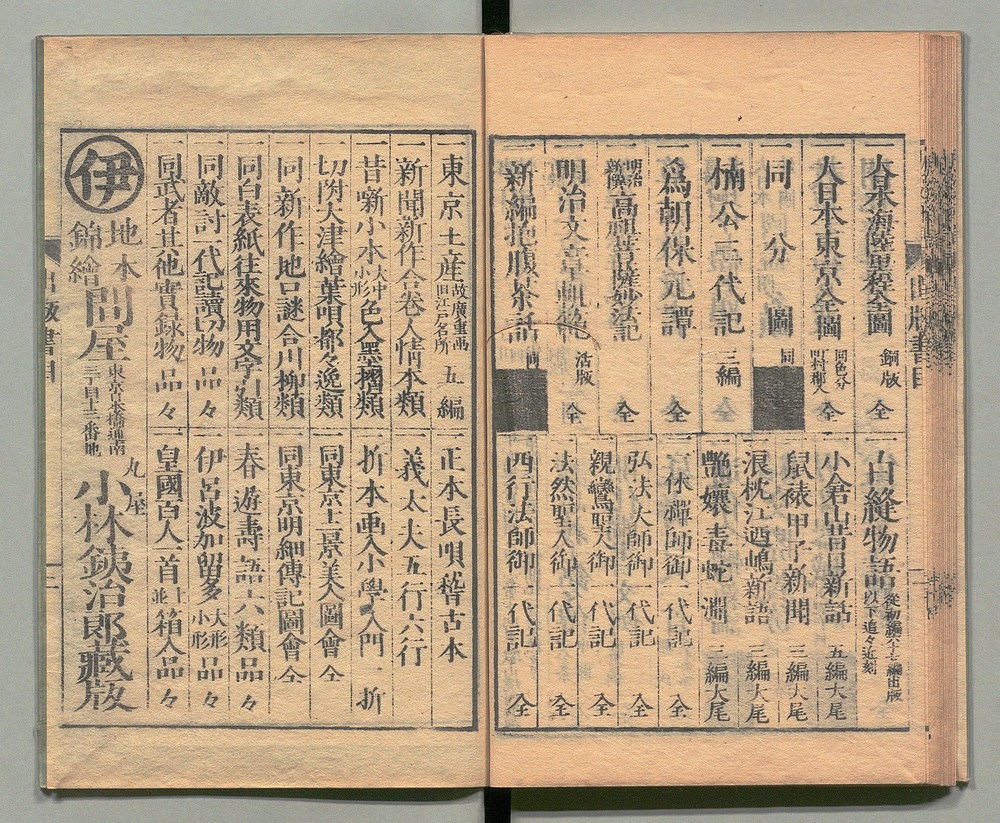 一大日本海陸里程全圖 銅版 全
一大日本東京全圖 同色分町村郡入 全
一同 國分圖 同
一楠公三代記 三編 全
一爲朝保元譚 全
一明治新撰高祖菩薩妙法記 全
一明治文章軌範 活版 全
一新編抱腹茶話 同
一白縫物語 從初編六十七編出版以下追々近刻
一小倉山青樹新話 五編大尾
一鼠裱甲子新聞 三編大尾
一浪枕江の嶋新語 三編大尾
一艷孃毒蛇淵 三編大尾
一一休禪師御一代記 全
一弘法大師御一代記 全
一親鸞聖人御一代記 全
一法然聖人御一代記 全
一西行法師御一代記 全
出版書目
一東京土産 故廣重畫旧江戸名所 五編
一新聞新作合卷人情本類
一昔噺小本 大中小形 色入墨摺類
一切附大津繪葉唄都々逸類
一同新作地口謎合川柳類
一同白表紙往來物用文字引類
一同敵討一代記讀切物品々
一同武者其他實録物品々
一正本長唄稽古本
一義太夫五行六行
一折本画入小學入門一折
一同東京上景美人圖會 仝
一同東京明細傳記圖會 仝
一春遊壽語六類品々
一伊呂波加留多 大形小形 品々
一皇國百人一首並ニ箱入品々
伊
地本錦繪問屋
東京日本橋通南三丁目十三番地
丸屋
小林銕治郎藏版
出版書目